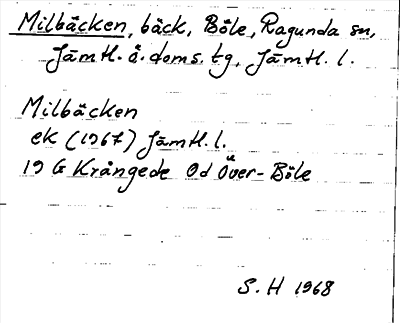 Milbäcken, bäck, Böle, Ragunda sn,
Jämtl. ö. doms. tg, Jämtl. l.
Milbäcken
ek (1967) Jämtl. l.
19 G Krångede 0d Över-Böle
S. H 1968